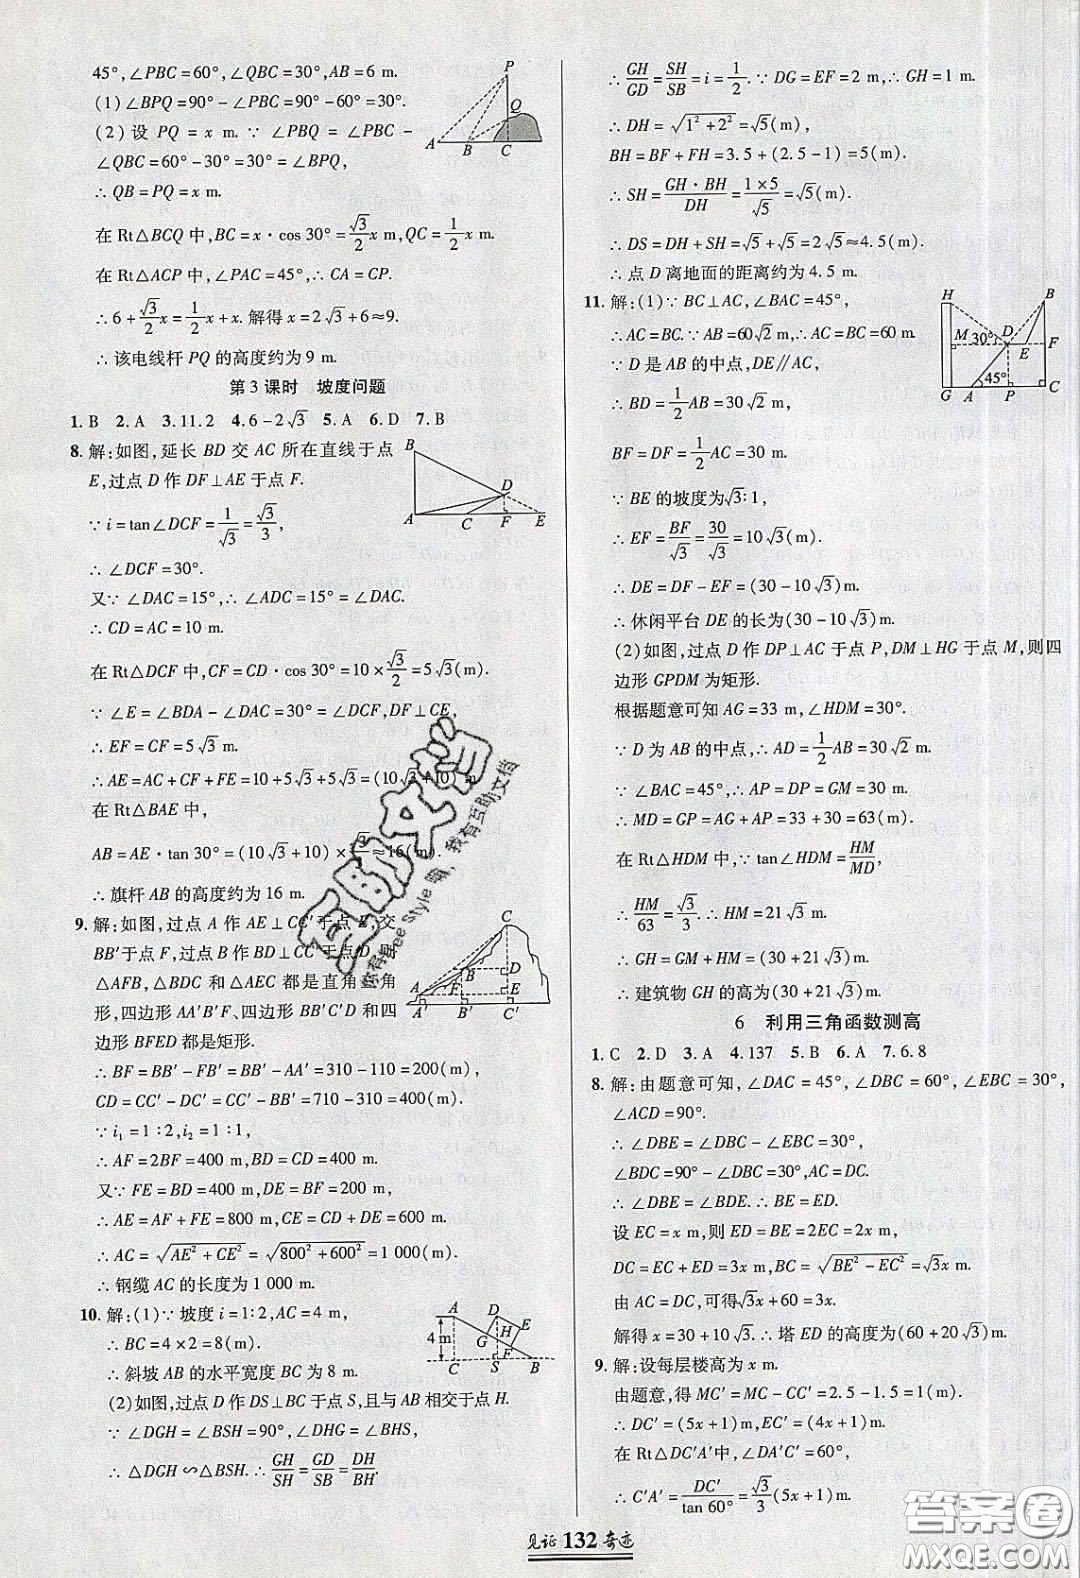 45°,∠PBC=60°,∠QBC=30°,AB=6 m.
(1)∠BPQ=90°-∠PBC=90°-60°=30°.
(2)设 PQ=x m.∵∠PBQ=∠PBC-
∠QBC=60°-30°=30°=∠BPQ,
∴QB=PQ=x m.
在 Rt△BCQ 中,BC=x·cos 30°=√3/2 x m,QC=1/2 x m.
在 Rt△ACP 中,∠PAC=45°,∴CA=CP.
∴6+√3/2 x=1/2 x+x.解得 x=2√3+6≈9.
∴该电线杆 PQ 的高度约为 9 m.
P
Q
A B C
第 3 课时 坡度问题
1.B 2.A 3.11.2 4.6-2√3 5.A 6.D 7.B
8.解:如图,延长 BD 交 AC 所在直线于点
E,过点 D 作 DF⊥AE 于点 F.
∵i=tan∠DCF=1/√3=√3/3,
∴∠DCF=30°.
又∵∠DAC=15°,∴∠ADC=15°=∠DAC.
∴CD=AC=10 m.
在 Rt△DCF 中,CF=CD·cos 30°=10×√3/2=5√3(m).
∵∠E=∠BDA-∠DAC=30°=∠DCF,DF⊥CE,
∴EF=CF=5√3 m.
∴AE=AC+CF+FE=10+5√3+5√3=(10√3+10) m
在 Rt△BAE 中,
AB=AE·tan 30°=(10√3+10)×√3/3≈16(m).
∴旗杆 AB 的高度约为 16 m.
B
D
A C F E
9.解:如图,过点 A 作 AE⊥CC′于点 E,交
BB′于点 F,过点 B 作 BD⊥CC′于点 D,则
△AFB,△BDC 和△AEC 都是直角三角
形,四边形 AA′B′F、四边形 BB′C′D 和四
边形 BFED 都是矩形.
∴BF=BB′-FB′=BB′-AA′=310-110=200(m),
CD=CC′-DC′=CC′-BB′=710-310=400(m).
∵i₁=1∶2,i₂=1∶1,
∴AF=2BF=400 m,BD=CD=400 m.
又∵FE=BD=400 m,DE=BF=200 m,
∴AE=AF+FE=800 m,CE=CD+DE=600 m.
∴AC=√(AE²+CE²)=√(800²+600²)=1 000(m).
∴钢缆 AC 的长度为 1 000 m.
C
B D
A F E
A′ B′ C′
10.解:(1)∵坡度 i=1∶2,AC=4 m,
∴BC=4×2=8(m).
∴斜坡 AB 的水平宽度 BC 为 8 m.
(2)如图,过点 D 作 DS⊥BC 于点 S,且与 AB 相交于点 H.
∵∠DGH=∠BSH=90°,∠DHG=∠BHS,
∴△DGH∽△BSH.∴GH/SH=GD/SB=DH/BH.
A D
E
4 m G H
F
C S B
∴GH/GD=SH/SB=i=1/2.∵DG=EF=2 m,∴GH=1 m.
∴DH=√(1²+2²)=√5(m),
BH=BF+FH=3.5+(2.5-1)=5(m).
∴SH=GH·BH/DH=1×5/√5=√5(m).
∴DS=DH+SH=√5+√5=2√5≈4.5(m).
∴点 D 离地面的距离约为 4.5 m.
11.解:(1)∵BC⊥AC,∠BAC=45°,
∴AC=BC.∵AB=60√2 m,∴AC=BC=60 m.
∵D 是 AB 的中点,DE∥AC,
∴BD=1/2 AB=30√2 m,
BF=DF=1/2 AC=30 m.
∵BE 的坡度为√3∶1,
∴EF=BF/√3=30/√3=10√3(m).
∴DE=DF-EF=(30-10√3)m.
∴休闲平台 DE 的长为(30-10√3)m.
H B
M 30° D E F
45°
G A P C
(2)如图,过点 D 作 DP⊥AC 于点 P,DM⊥HG 于点 M,则四
边形 GPDM 为矩形.
根据题意可知 AG=33 m,∠HDM=30°.
∵D 为 AB 的中点,∴AD=1/2 AB=30√2 m.
∵∠BAC=45°,∴AP=DP=GM=30 m.
∴MD=GP=AG+AP=33+30=63(m).
在 Rt△HDM 中,∵tan∠HDM=HM/MD,
∴HM/63=√3/3.∴HM=21√3 m.
∴GH=GM+HM=(30+21√3)m.
∴建筑物 GH 的高为(30+21√3)m.
6 利用三角函数测高
1.C 2.D 3.A 4.137 5.B 6.A 7.6.8
8.解:由题意可知,∠DAC=45°,∠DBC=60°,∠EBC=30°,
∠ACD=90°.
∴∠DBE=∠DBC-∠EBC=30°,
∠BDC=90°-∠DBC=30°,AC=DC.
∴∠DBE=∠BDE.∴BE=ED.
设 EC=x m,则 ED=BE=2EC=2x m,
DC=EC+ED=3x m,BC=√(BE²-EC²)=√3x m.
由 AC=DC,可得√3x+60=3x.
解得 x=30+10√3.∴塔 ED 的高度为(60+20√3)m.
9.解:设每层楼高为 x m.
由题意,得 MC′=MC-CC′=2.5-1.5=1(m).
∴DC′=(5x+1)m,EC′=(4x+1)m.
在 Rt△DC′A′中,∠DA′C′=60°,
∴C′A′=DC′/tan 60°=√3/3(5x+1)m.
见证132奇迹
答案圈
MXQE.COM